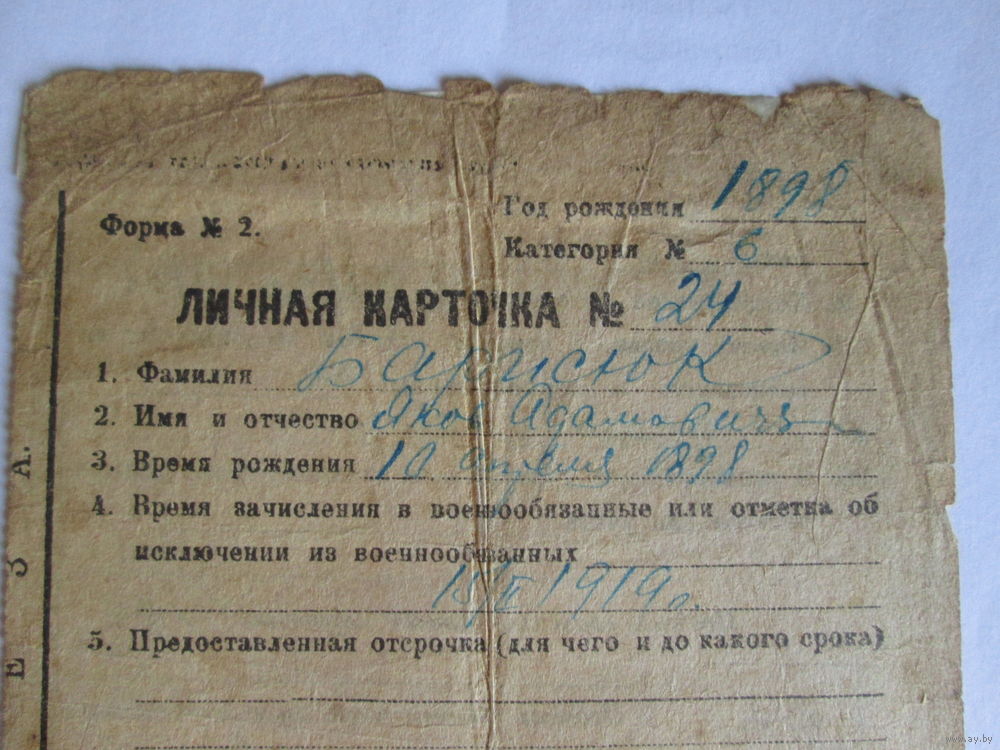 Год рождения 1898
Форма № 2.
Категория № 6
ЛИЧНАЯ КАРТОЧКА № 24
1. Фамилия
2. Имя и отчество Яков Адамович
3. Время рождения 10 апреля 1898
4. Время зачисления в военнообязанные или отметка об
исключении из военнообязанных
15/II 1919 г.
5. Предоставленная отсрочка (для чего и до какого срока)
Е З А.
www.ay.by